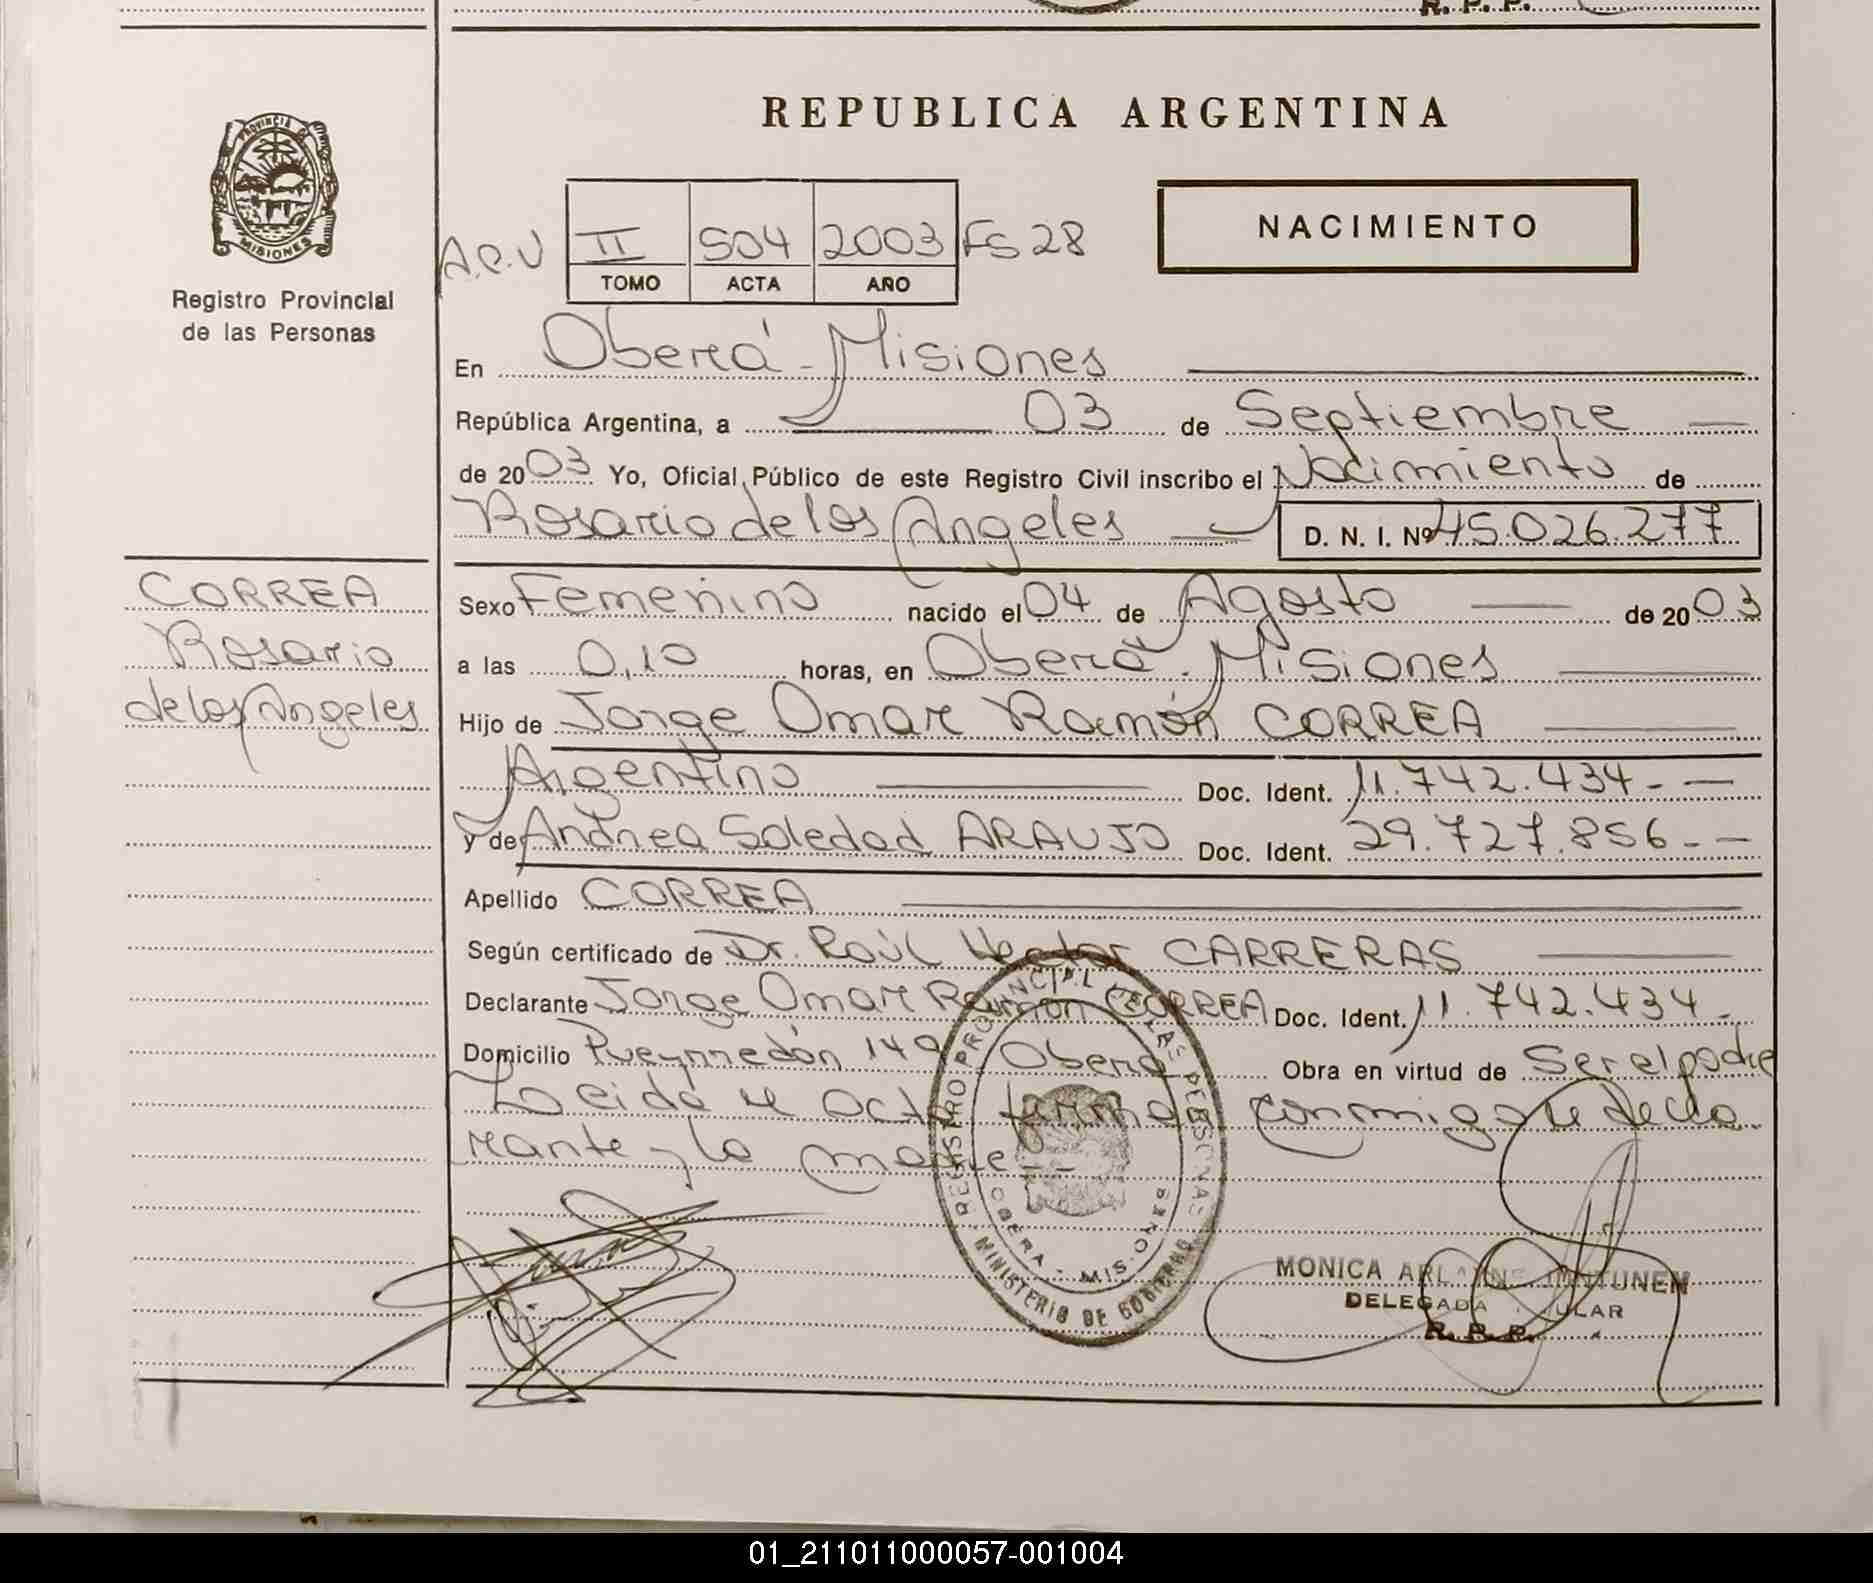 R. P. P.
PROVINCIA DE
MISIONES
Registro Provincial
de las Personas
REPUBLICA ARGENTINA
NACIMIENTO
A.C.V II 504 2003 FS 28
TOMO ACTA AÑO
En Oberá - Misiones
República Argentina, a 03 de Septiembre
de 2003 Yo, Oficial Público de este Registro Civil inscribo el Nacimiento de
Rosario de los Angeles D. N. I. Nº 45.026.277
CORREA
Rosario
de los Angeles
Sexo Femenino nacido el 04 de Agosto de 2003
a las 0,10 horas, en Oberá - Misiones
Hijo de Jorge Omar Ramón CORREA
Argentino Doc. Ident. 11.742.434.-
y de Andrea Soledad ARAUJO Doc. Ident. 29.727.856.-
Apellido CORREA
Según certificado de Dr. Raúl Hector CARRERAS
Declarante Jorge Omar Ramón CORREA Doc. Ident. 11.742.434.
Domicilio Pueyrredón 149 Oberá Obra en virtud de Ser el padre
Leida el acta firman conmigo el decla-
rante y la madre.-
REGISTRO PROVINCIAL DE LAS PERSONAS
OBERA - MIS.
MINISTERIO DE GOBIERNO
MONICA
DELEGADA TITULAR
R. P. P.
01_211011000057-001004